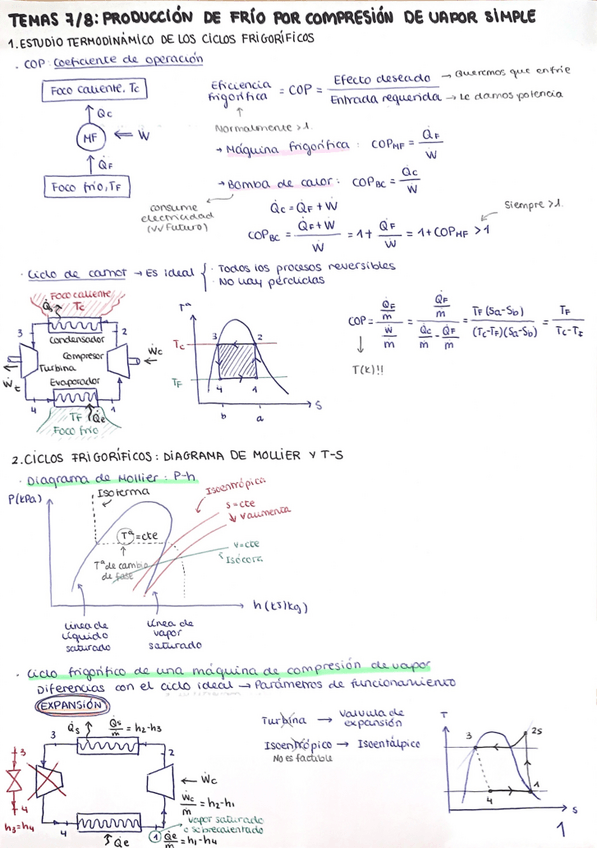 TEMAS 7/8: PRODUCCIÓN DE FRÍO POR COMPRESIÓN DE VAPOR SIMPLE
1. ESTUDIO TERMODINÁMICO DE LOS CICLOS FRIGORÍFICOS
· COP: Coeficiente de operación
Foco caliente, Tc
Q̇c
MF ⇐ Ẇ
Q̇F
Foco frío, TF
Eficiencia frigorífica = COP = Efecto deseado / Entrada requerida
→ Queremos que enfríe
→ Le damos potencia
Normalmente >1.
→ Máquina frigorífica: COP_MF = Q̇F / Ẇ
→ Bomba de calor: COP_BC = Q̇c / Ẇ
consume
electricidad
(VV Futuro)
Q̇c = Q̇F + Ẇ
COP_BC = (Q̇F + Ẇ) / Ẇ = 1 + Q̇F / Ẇ = 1 + COP_MF > 1
Siempre >1.
· Ciclo de carnot → Es ideal { · Todos los procesos reversibles
· No hay pérdidas
Foco caliente
Tc
3
2
Condensador
Compresor
Ẇc
Turbina
Ẇt
Evaporador
4
1
TF
Q̇e
Foco frío
Tª
Tc
TF
3 2
4 1
b a
S
COP = (Q̇F/m) / (Ẇ/m) = (Q̇F/m) / (Q̇c/m - Q̇F/m) = TF (Sa-Sb) / (Tc-TF)(Sa-Sb) = TF / Tc-Tf
T(K)!!
2. CICLOS FRIGORÍFICOS: DIAGRAMA DE MOLLIER Y T-S
· Diagrama de Mollier: P-h
P(kPa)
Isoterma
Isoentrópica
s=cte
v aumenta
Tª=cte
v=cte
Isócora
Tª de cambio
de fase
h (kJ/kg)
Línea de
líquido
saturado
Línea de
vapor
saturado
· Ciclo frigorífico de una máquina de compresión de vapor
Diferencias con el ciclo ideal → Parámetros de funcionamiento
EXPANSIÓN
Q̇s
Q̇s/m = h2-h3
3
2
3
4
h3=h4
Ẇc
Ẇc/m = h2-h1
vapor saturado
o sobrecalentado
4
1
Q̇e
Q̇e/m = h1-h4
Turbina → Válvula de
expansión
Isoentrópico → Isoentálpico
No es factible
T
3
2s
4
1
s
1